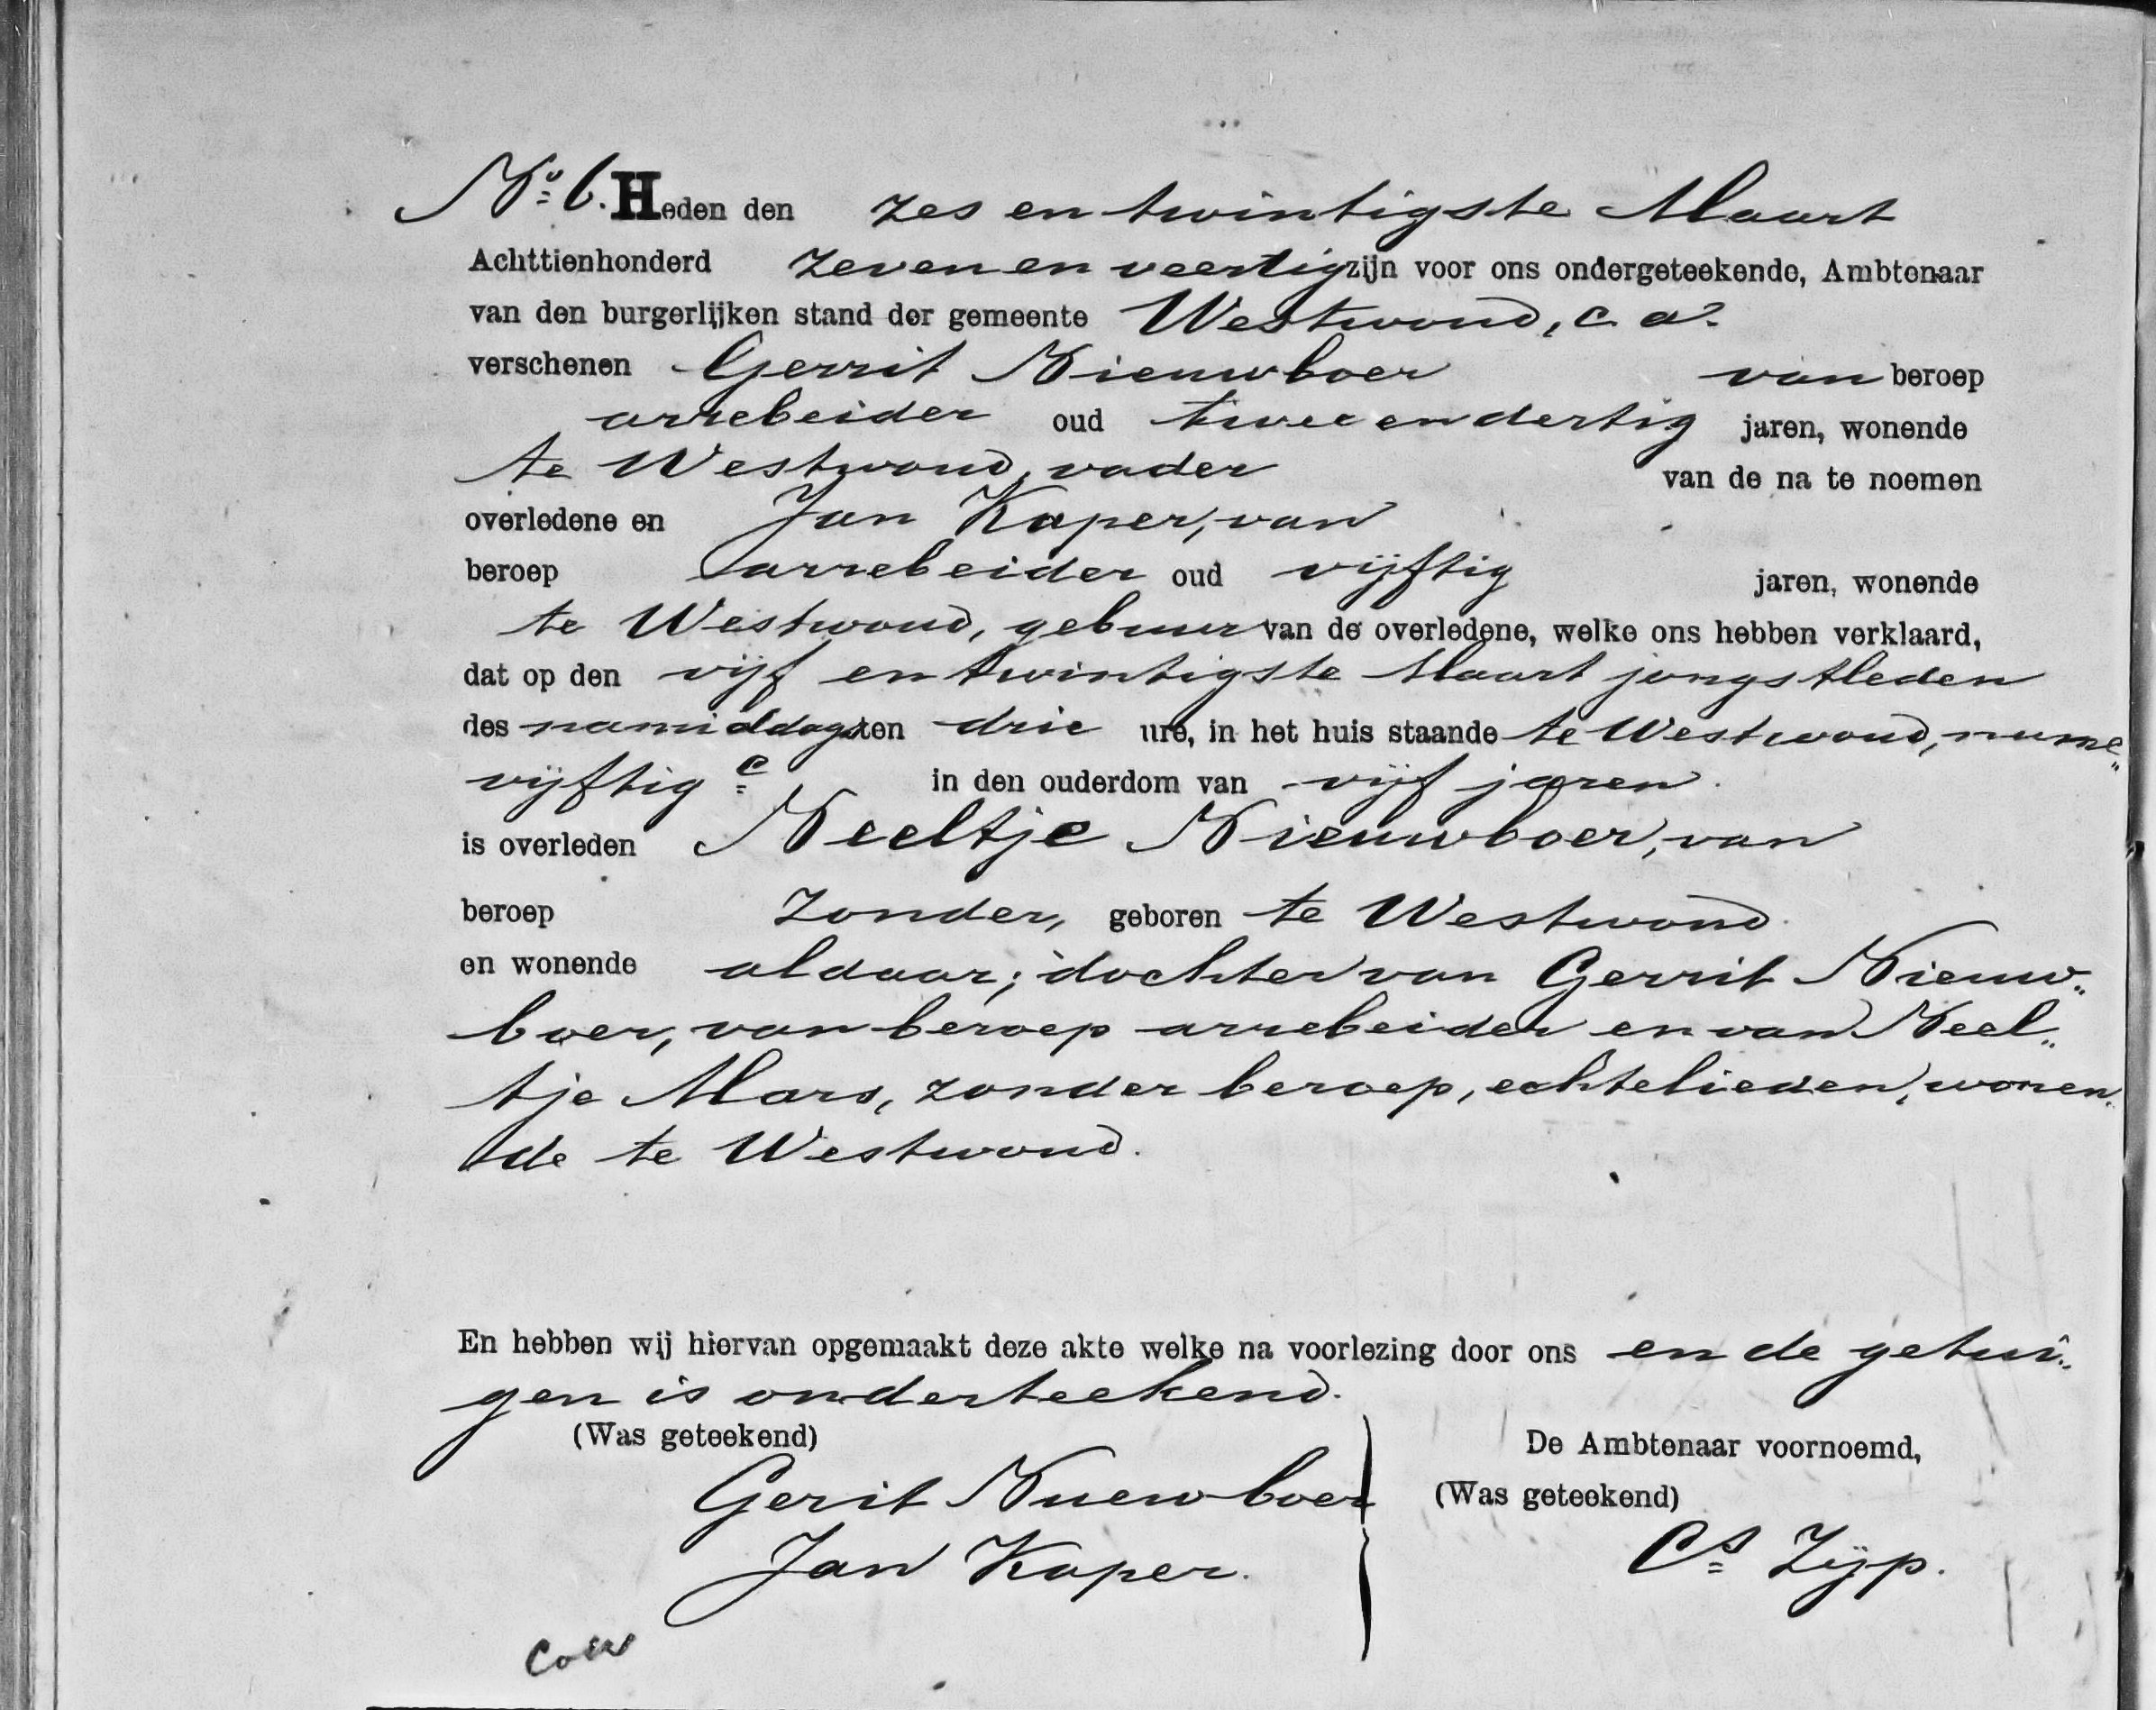 No 6. Heden den zes en twintigste Maart
Achttienhonderd zeven en veertig zijn voor ons ondergeteekende, Ambtenaar
van den burgerlijken stand der gemeente Westwoud, c. a.
verschenen Gerrit Nieuwboer van beroep
arrebeider oud twee en dertig jaren, wonende
te Westwoud, vader van de na te noemen
overledene en Jan Kaper, van
beroep arrebeider oud vijftig jaren, wonende
te Westwoud, gebuur van de overledene, welke ons hebben verklaard,
dat op den vijf en twintigste Maart jongstleden
des namiddags ten drie ure, in het huis staande te Westwoud, nume„
vijftig c in den ouderdom van vijf jaren.
is overleden Neeltje Nieuwboer, van
beroep zonder, geboren te Westwoud
en wonende aldaar; dochter van Gerrit Nieuw„
boer, van beroep arrebeider en van Neel„
tje Mars, zonder beroep, echtelieden, wonen„
de te Westwoud.
En hebben wij hiervan opgemaakt deze akte welke na voorlezing door ons en de getui„
gen is onderteekend.
(Was geteekend) De Ambtenaar voornoemd,
Gerit Nuewboer (Was geteekend)
Jan Kaper. Cs Zijp.